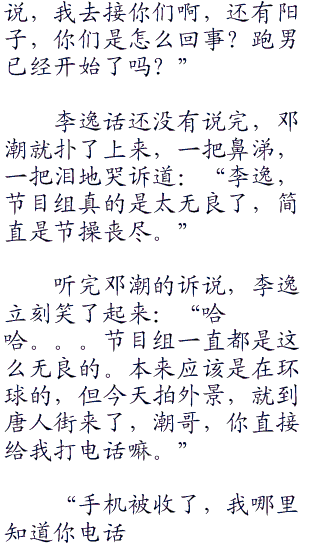 说，我去接你们啊，还有阳
子，你们是怎么回事？跑男
已经开始了吗？”
李逸话还没有说完，邓
潮就扑了上来，一把鼻涕，
一把泪地哭诉道：“李逸，
节目组真的是太无良了，简
直是节操丧尽。”
听完邓潮的诉说，李逸
立刻笑了起来：“哈
哈。。。节目组一直都是这
么无良的。本来应该是在环
球的，但今天拍外景，就到
唐人街来了，潮哥，你直接
给我打电话嘛。”
“手机被收了，我哪里
知道你电话